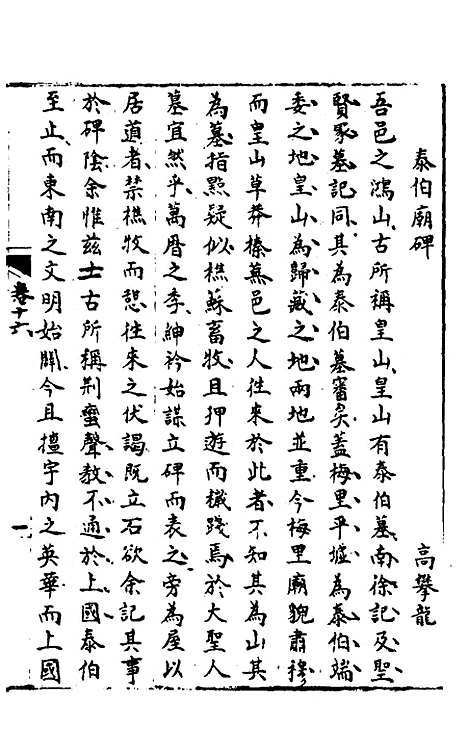 泰伯廟碑
高攀龍
吾邑之鴻山古所稱皇山皇山有泰伯墓南徐記及聖
賢冢墓記同其為泰伯墓審矣蓋梅里平墟為泰伯端
委之地皇山為歸藏之地兩地並重今梅里廟貌肅穆
而皇山草莽榛蕪邑之人往來於此者不知其為山其
為墓指點疑似樵蘇畜牧且狎遊而穢踐焉於大聖人
墓宜然乎萬曆之季紳衿始謀立碑而表之旁為屋以
居道者禁樵牧而恕往來之伏謁既立石欲余記其事
於碑陰余惟茲土古所稱荆蠻聲教不通於上國泰伯
至止而東南之文明始闢今且擅宇內之英華而上國
卷十六
一